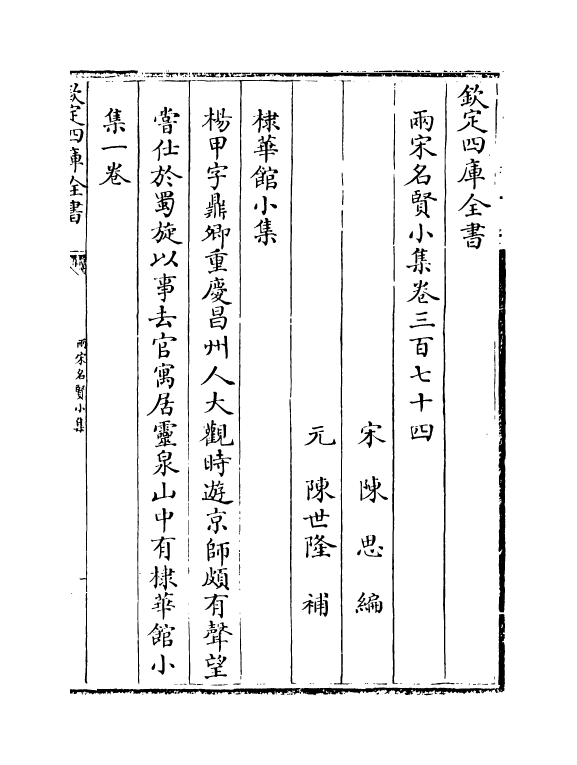 欽定四庫全書
兩宋名賢小集卷三百七十四
宋 陳思 編
元 陳世隆 補
棣華館小集
楊甲字鼎卿重慶昌州人大觀時遊京師頗有聲望
嘗仕於蜀旋以事去官寓居靈泉山中有棣華館小
集一卷
欽定四庫全書
兩宋名賢小集
一